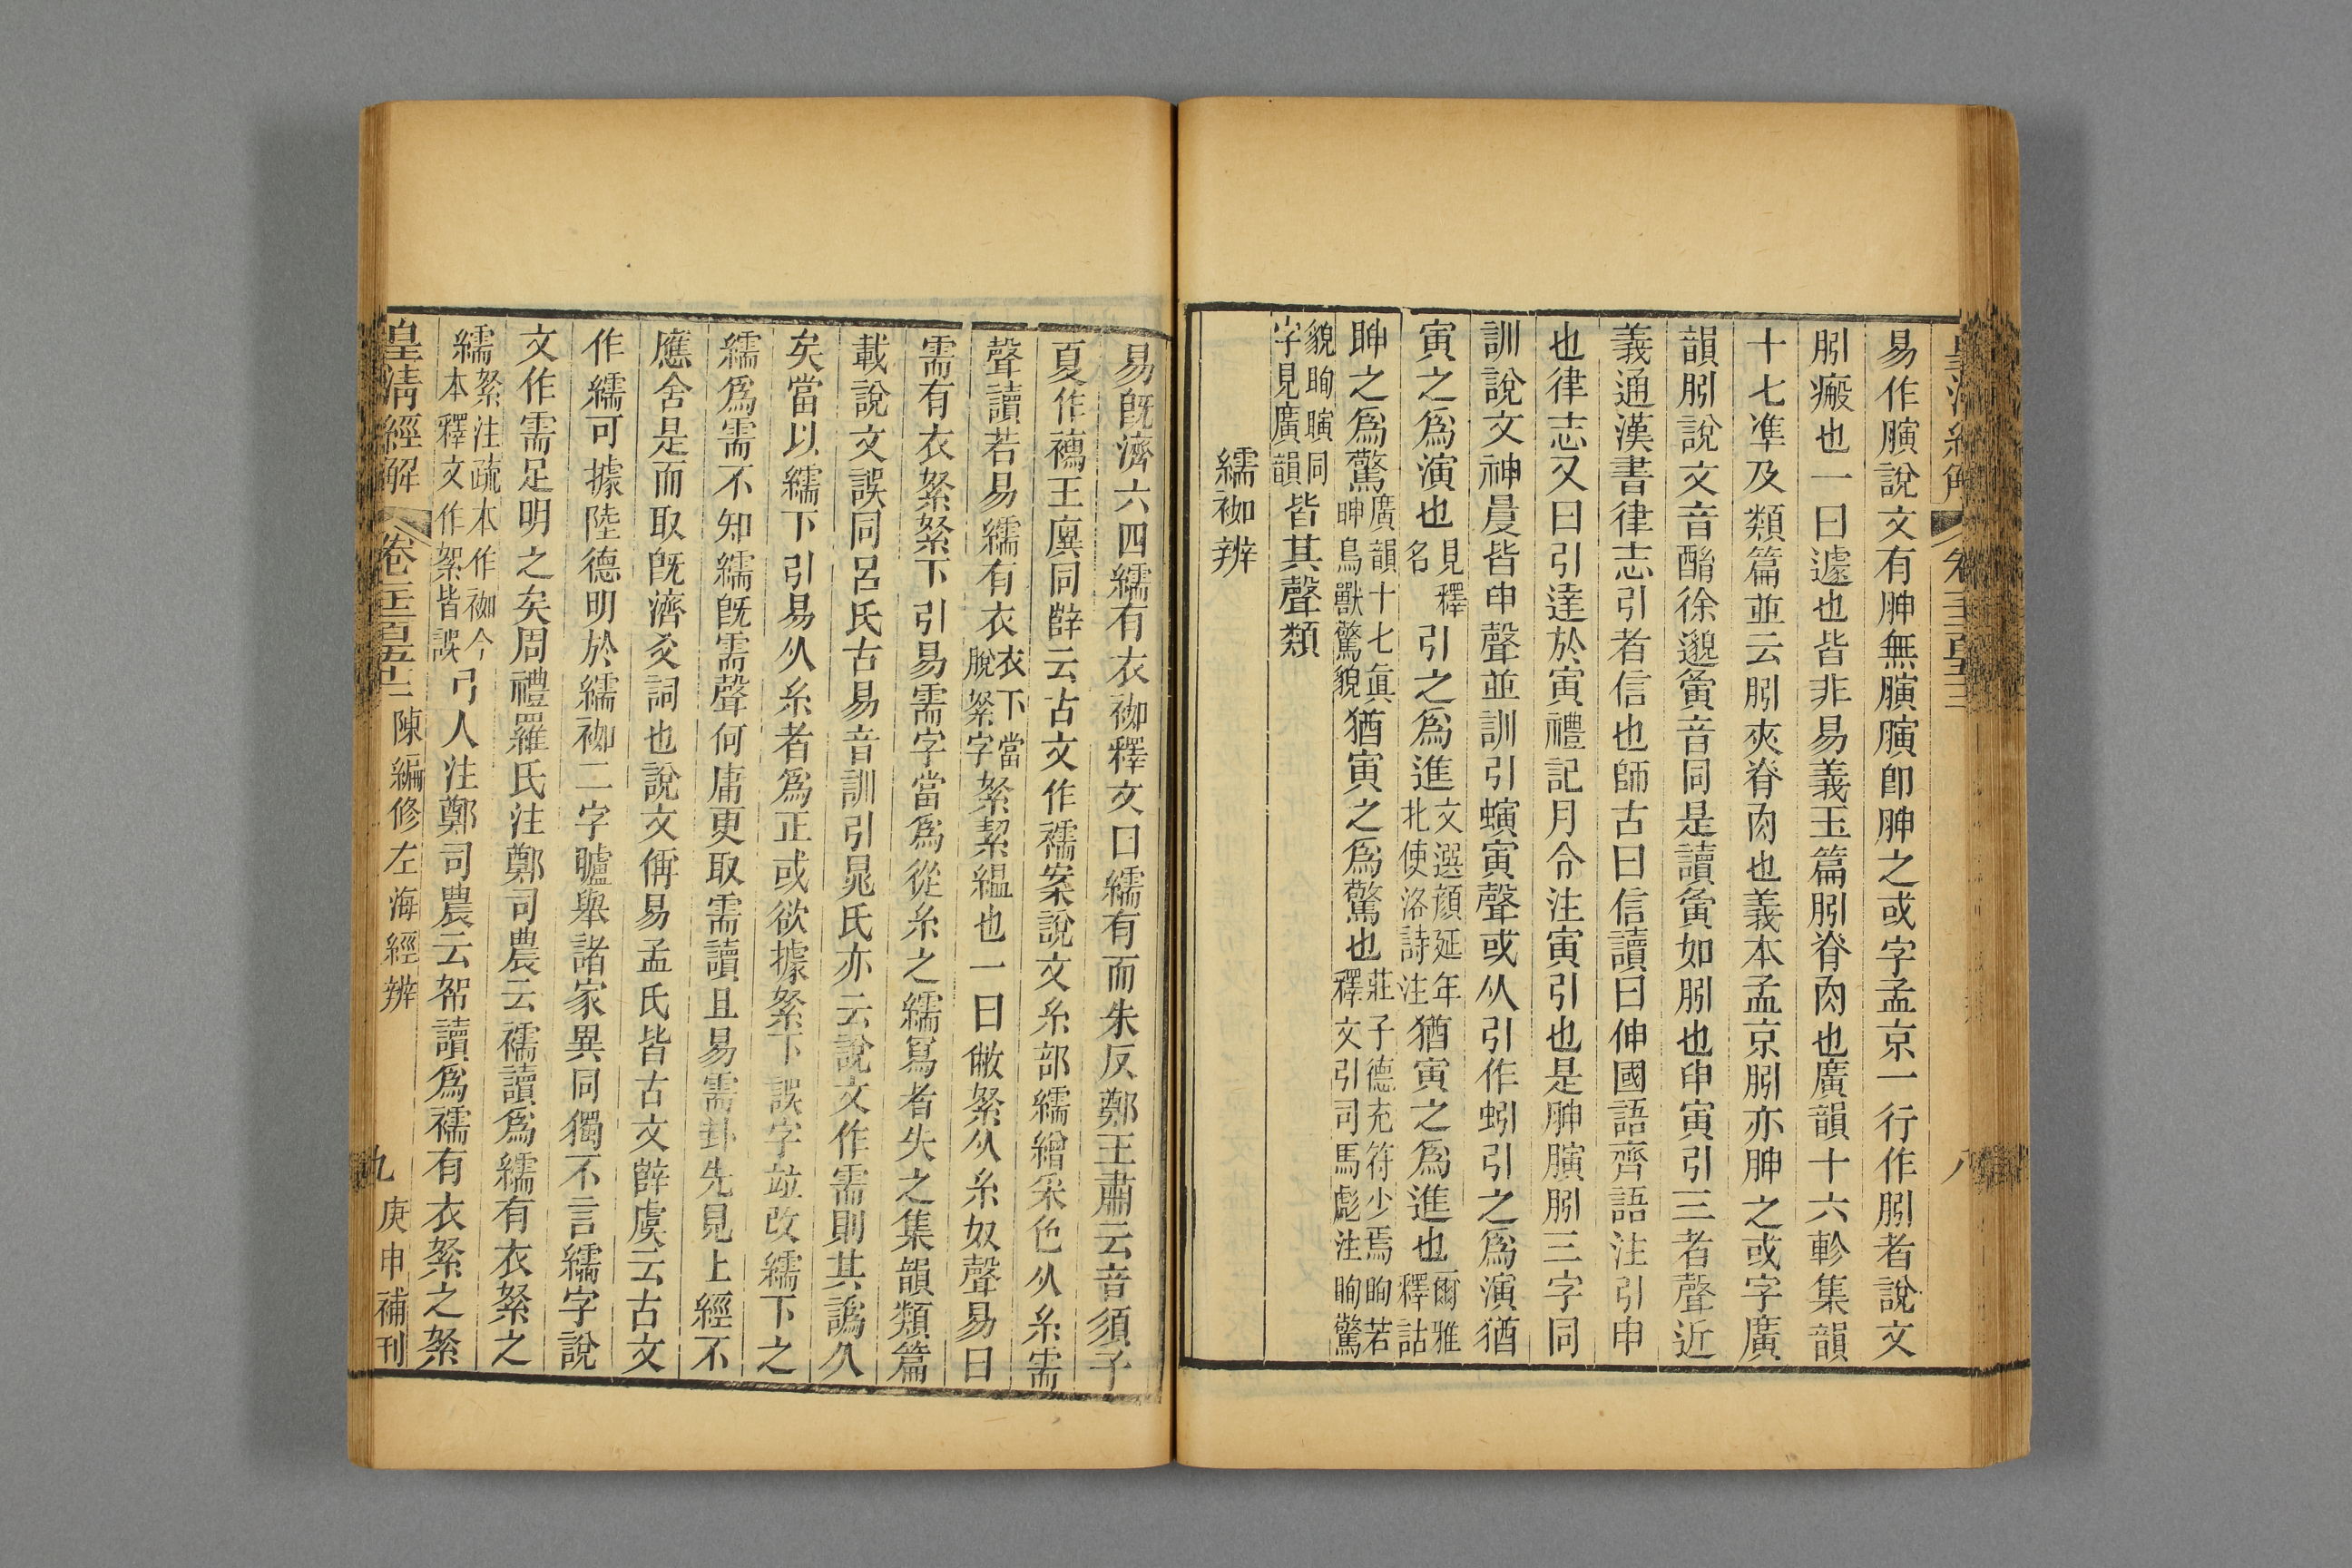 易作䐿說文有胂無䐿䐿卽胂之或字孟京一行作䏖者說文
䏖瘢也一曰遽也皆非易義玉篇䏖脊肉也廣韻十六軫集韻
十七凖及類篇並云䏖夾脊肉也義本孟京䏖亦胂之或字廣
韻䏖說文音酳徐邈夤音同是讀夤如䏖也申寅引三者聲近
義通漢書律志引者信也師古曰信讀曰伸國語齊語注引申
也律志又曰引達於寅禮記月令注寅引也是胂䐿䏖三字同
訓說文神㫳皆申聲並訓引螾寅聲或从引作蚓引之爲演猶
寅之爲演也見釋名引之爲進文選顏延年北使洛詩注猶寅之爲進也爾雅釋詁
眒之爲驚廣韻十七眞眒鳥獸驚貌猶寅之爲驚也莊子德充符少焉眴若釋文引司馬彪注眴驚
貌眴瞚同字見廣韻皆其聲類
繻袽辨
易旣濟六四繻有衣袽釋文曰繻有而朱反鄭王肅云音須子
夏作襦王廙同薛云古文作襦案說文糸部繻繒采色从糸需
聲讀若易繻有衣衣下當脫絮字絮絜縕也一曰敝絮从糸奴聲易曰
需有衣絮絮下引易需字當爲從糸之繻寫者失之集韻類篇
載說文誤同呂氏古易音訓引晁氏亦云說文作需則其譌久
矣當以繻下引易从糸者爲正或欲據絮下誤字竝改繻下之
繻爲需不知繻旣需聲何庸更取需讀且易需卦先見上經不
應舍是而取旣濟爻詞也說文偁易孟氏皆古文薛虞云古文
作繻可據陸德明於繻袽二字臚舉諸家異同獨不言繻字說
文作需足明之矣周禮羅氏注鄭司農云襦讀爲繻有衣絮之
繻絮注疏本作袽今本釋文作絮皆誤弓人注鄭司農云帤讀爲襦有衣絮之絮
皇淸經解 卷 陳編修左海經辨 九 庚申補刊